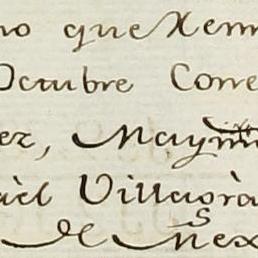 no que Xenn
Octubre Corre
ez, Maym
àel Villaorà
de Mex